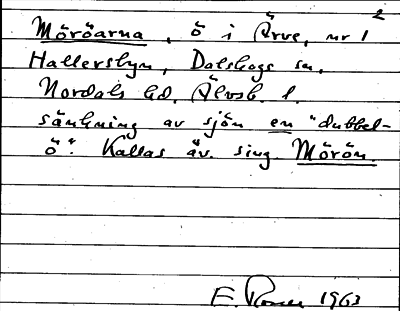 Möröarna, ö i Ärve, nr 1²
Hallersbyn, Dalskogs sn,
Nordals hd, Älvsb. l.
sänkning av sjön en "dubbel-
ö". Kallas äv. sing. Mörön.
E. 1963